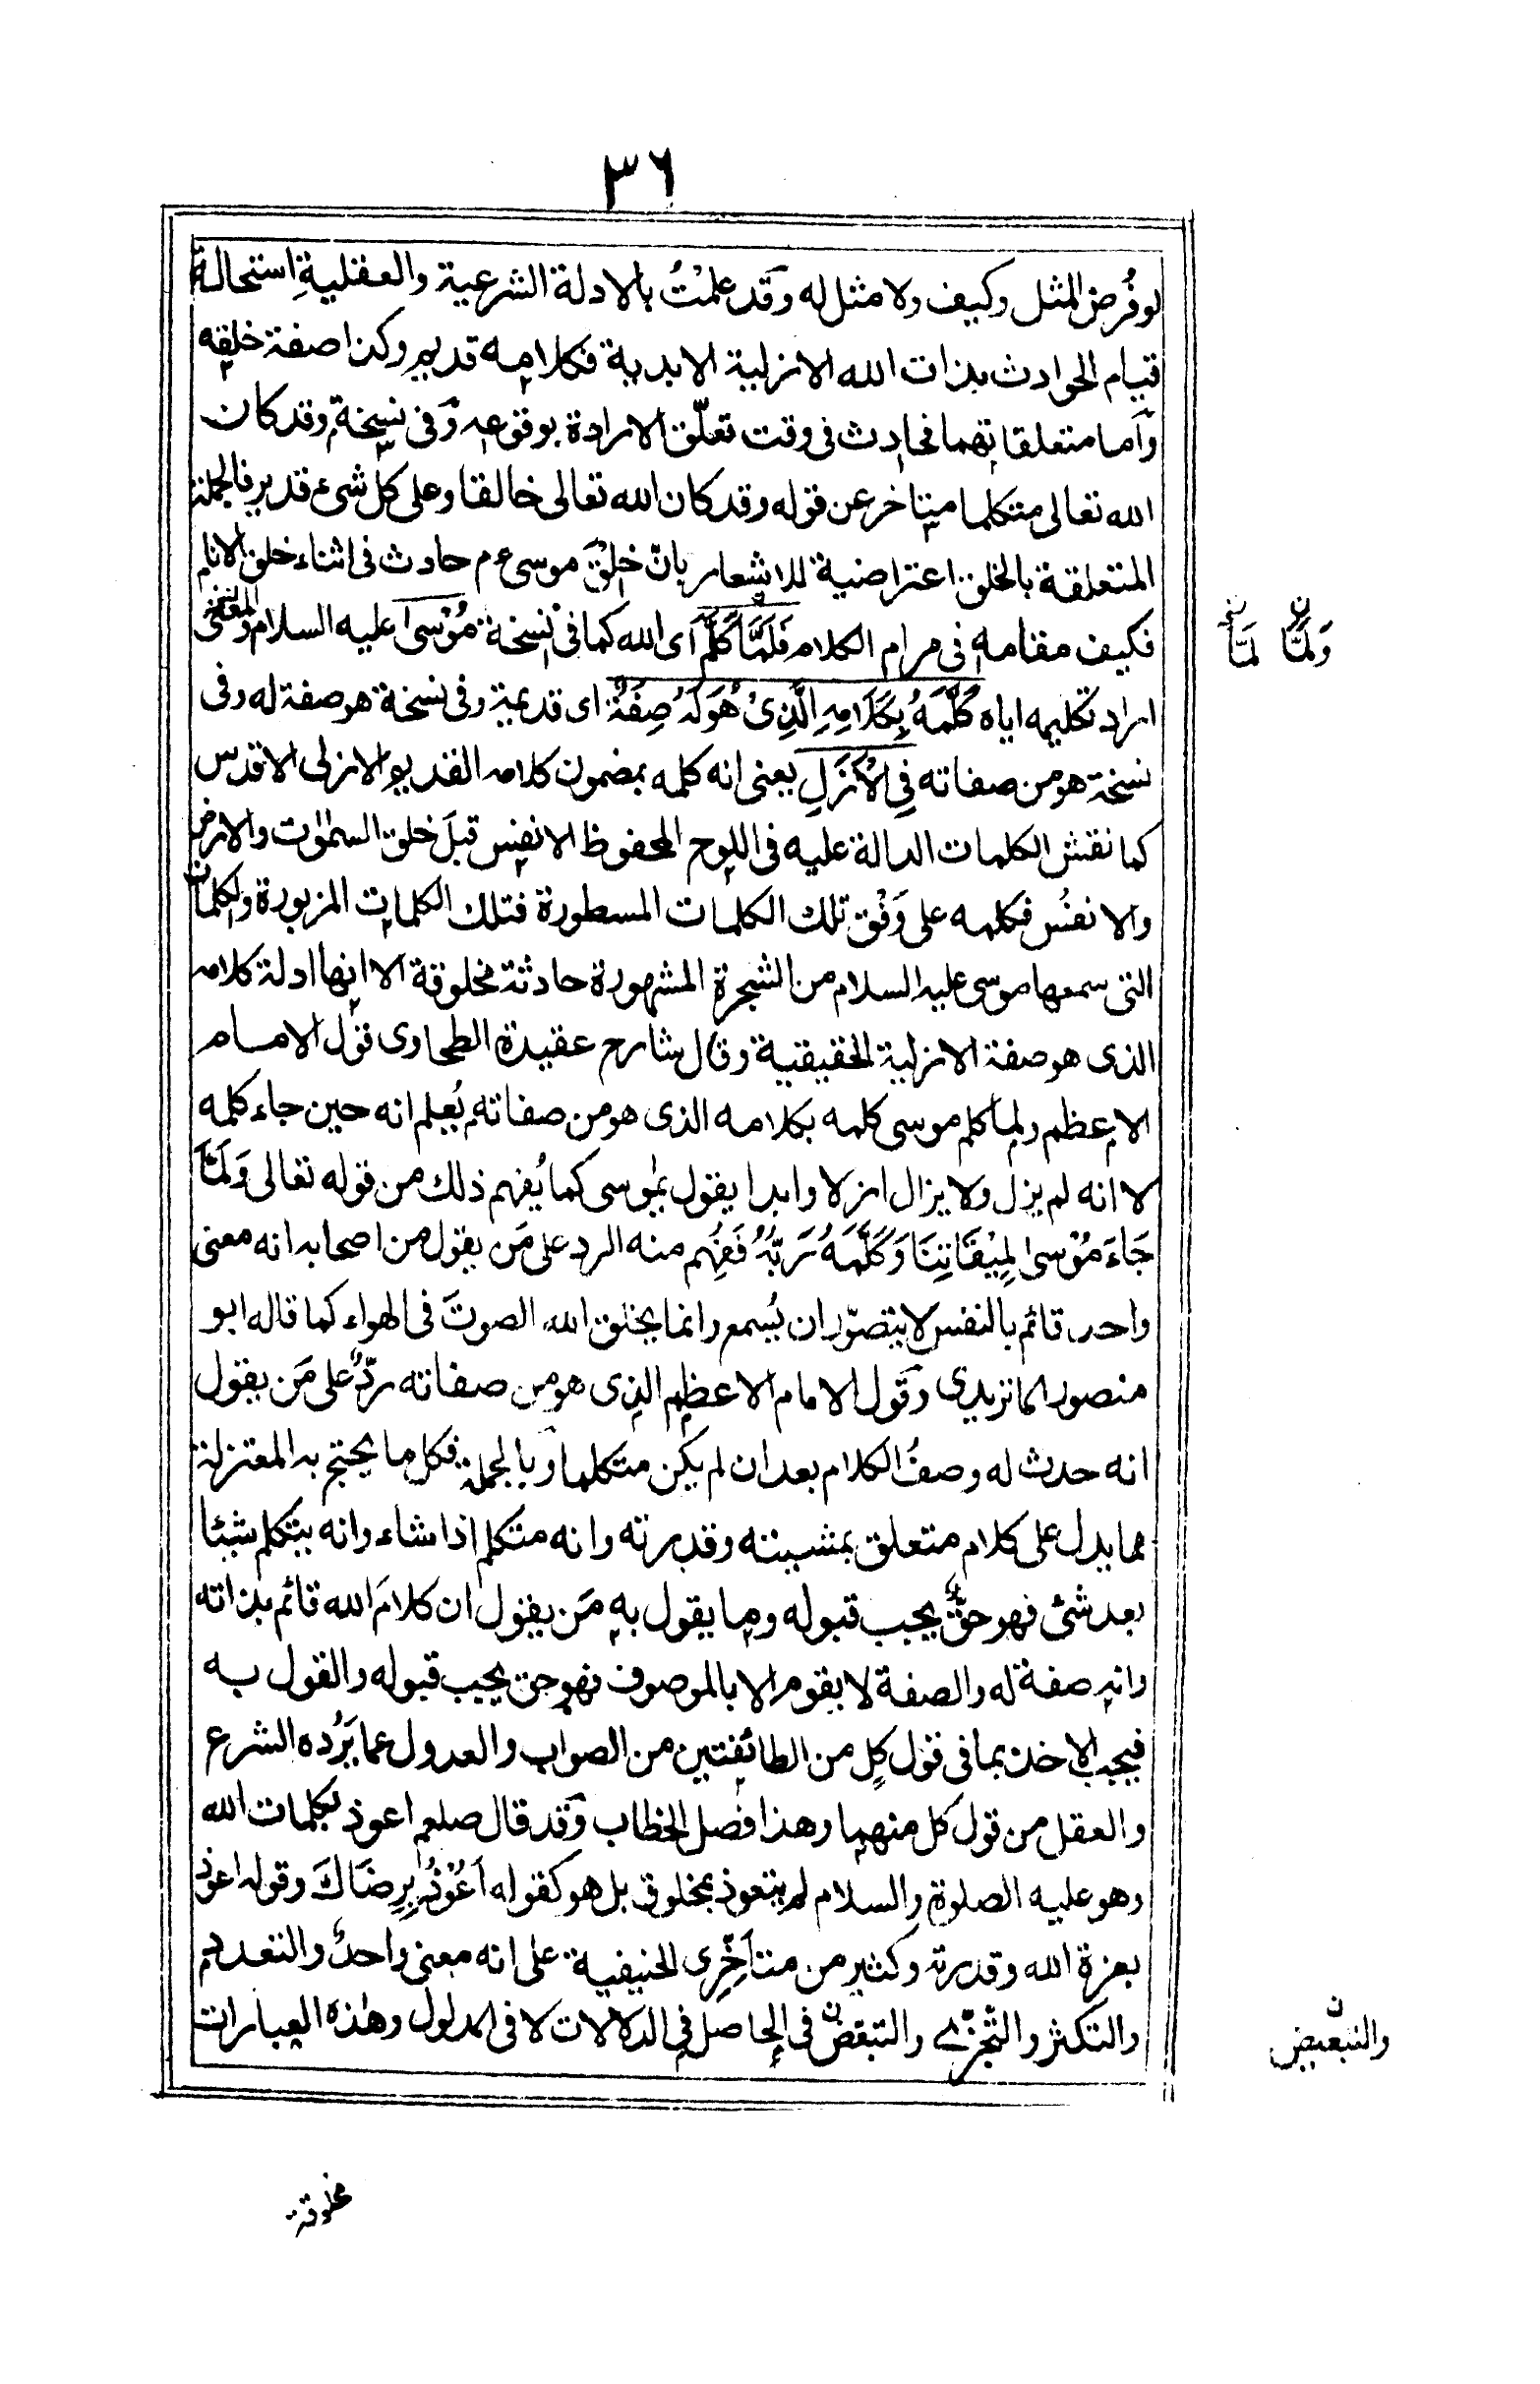 ٣٦
لو فُرض المثل وكيف ولا مثل له وقد علمتُ بالادلة الشرعية والعقليةِ استحالة
قيام الحوادث بذات الله الازلية الابدية فكلامه قديم وكذا صفة خلقه
وأما متعلقاتهما فحادث فى وقت تعلّق الارادة بوقوعه وفى نسخة وقد كان
الله تعالى متكلما متاخر عن قوله وقد كان الله تعالى خالقا وعلى كل شىء قدير فالجملة
المتعلقة بالخلق اعتراضية للاشعار بانّ خلقَ موسى ع م حادث فى اثناء خلق الانام
فكيف مقامه فى مرام الكلام فَلَمَّا كَلَّمَ اى الله كما فى نسخة مُوْسىٰ عليه السلام والمعنى
اراد تكليمه اياه كَلَّمَهُ بِكَلَامِهِ الَّذِىْ هُوَ لَهُ صِفَةٌ اى قديمة وفى نسخة هو صفة له وفى
نسخة هو من صفاته فِى الْاَزَلِ يعنى انه كلمه بمضمون كلامه القديم الازلى الاقدس
كما نقش الكلمات الدالة عليه فى اللوح المحفوظ الانفس قبلَ خلق السمٰوٰت والارض
والانفُس فكلمه على وَفْق تلك الكلمات المسطورة فتلك الكلمات المزبورة والكلمات
التى سمعها موسى عليه السلام من الشجرة المشهورة حادثة مخلوقة الا انها ادلة كلامه
الذى هو صفة الازلية الحقيقية وقال شارح عقيدة الطحاوى قول الامام
الاعظم ولما كلم موسى كلمه بكلامه الذى هو من صفاته يُعلم انه حين جاء كلمه
لا انه لم يزل ولا يزال ازلا وابدا يقول يٰموسى كما يُفهم ذلك من قوله تعالى وَلَمَّا
جَاءَ مُوْسىٰ لِمِيْقَاتِنَا وَكَلَّمَهُ رَبُّهُ فَفُهِم منه الرد على مَن يقول من اصحابه انه معنى
واحد قائم بالنفس لا يتصوّر ان يُسمع وانما يخلق الله الصوتَ فى الهواء كما قاله ابو
منصور الماتريدى وقول الامام الاعظم الذى هو من صفاته ردّ على مَن يقول
انه حدث له وصفُ الكلام بعد ان لم يكن متكلما وبالجملة فكل ما يحتج به المعتزلة
مما يدل على كلام متعلق بمشيته وقدرته وانه متكلم اذا شاء وانه يتكلم شيئا
بعد شئ فهو حقٌّ يجب قبوله وما يقول به مَن يقول ان كلامَ الله قائم بذاته
وانه صفة له والصفة لا يقوم الا بالموصوف فهو حق يجب قبوله والقول به
فيجب الاخذ بما فى قول كلٍ من الطائفتين من الصواب والعدول عما يَرُده الشرع
والعقل من قول كل منهما وهذا فصل الخطاب وقد قال صلعم اعوذ بكلمات الله
وهو عليه الصلوة والسلام لم يتعوذ بمخلوق بل هو كقوله اَعُوْذُ بِرِضَاكَ وقوله اعوذ
بعزة الله وقدرته وكثير من متأخّرِى الحنيفية على انه معنى واحدٌ والتعدد
والتكثر والتجزى والتبعض فى الحاصل فى الدلالات لا فى المدلول وهٰذه العبارات
وَلَمَّا لَمَّا
والتبعيض
مخلوقة